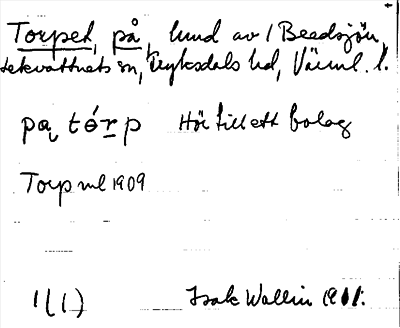 Torpet, på, lund av / Beedsjön,
Lekvattnets sn, Fryksdals hd, Värml. l.
pą tórp Hör till ett bolag
Torp ml 1909
1(1) Isak Wallin 1911.